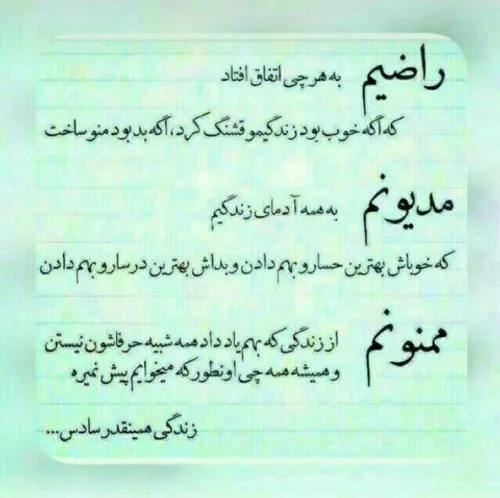 راضیم به هر چی اتفاق افتاد
که اگه خوب بود زندگیمو قشنگ کرد، اگه بد بود منو ساخت
مدیونم به همه آدمای زندگیم
که خوباش بهترین حسارو بهم دادن و بداش بهترین درسارو بهم دادن
ممنونم از زندگی که بهم یاد داد همه شبیه حرفاشون نیستن
و همیشه همه چی اونطور که میخوایم پیش نمیره
زندگی همینقدر سادس...